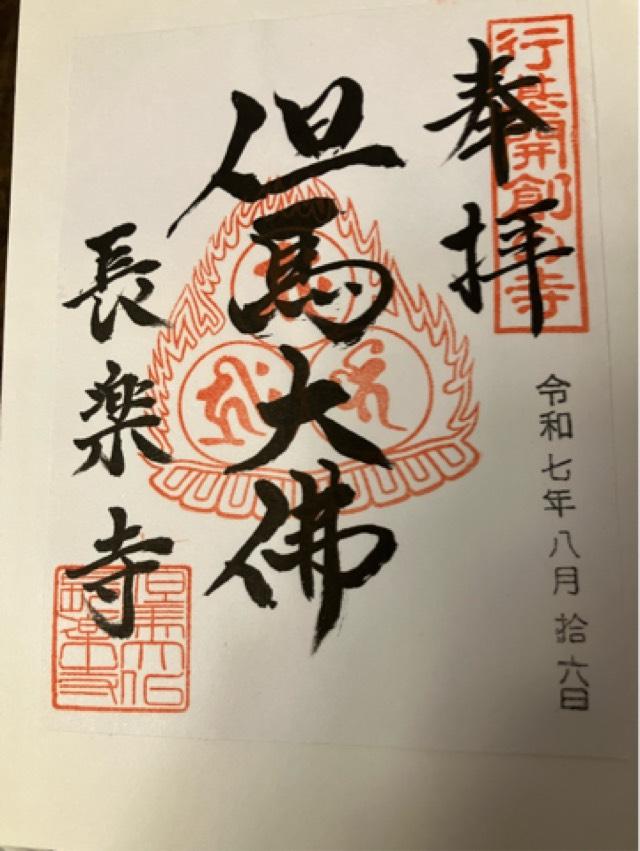 行基開創之寺
奉拝
令和七年八月拾六日
但馬大佛
長楽寺